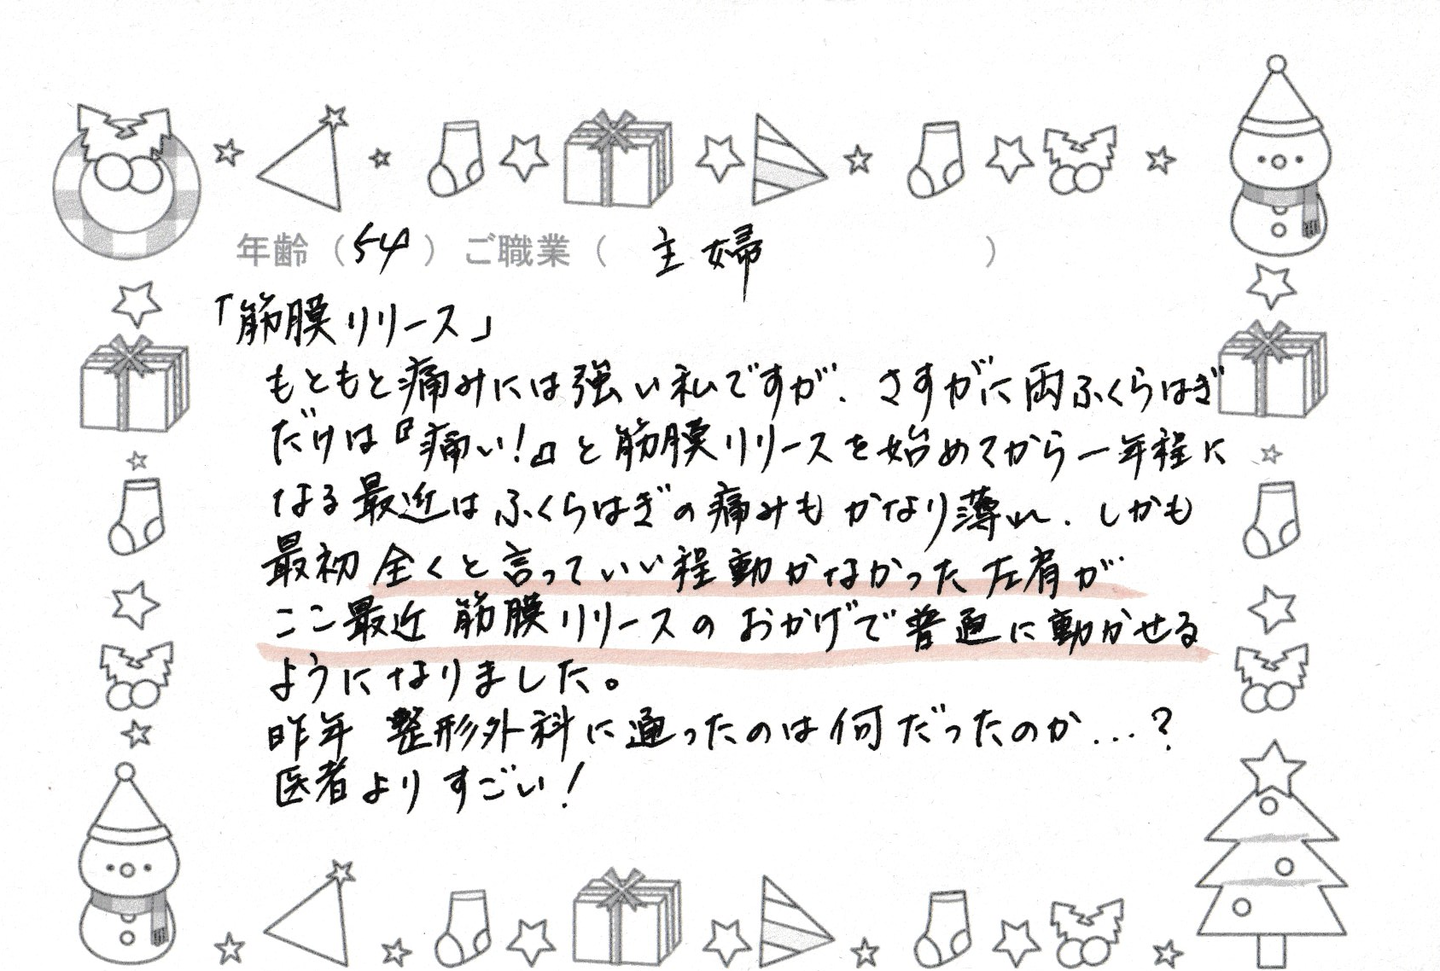 年齢（54）ご職業（ 主婦 ）
「筋膜リリース」
もともと痛みには強い私ですが、さすがに両ふくらはぎ
だけは『痛い！』と筋膜リリースを始めてから一年程に
なる最近はふくらはぎの痛みもかなり薄れ、しかも
最初全くと言っていい程動かなかった左肩が
ここ最近 筋膜リリースのおかげで普通に動かせる
ようになりました。
昨年 整形外科に通ったのは何だったのか…？
医者よりすごい！